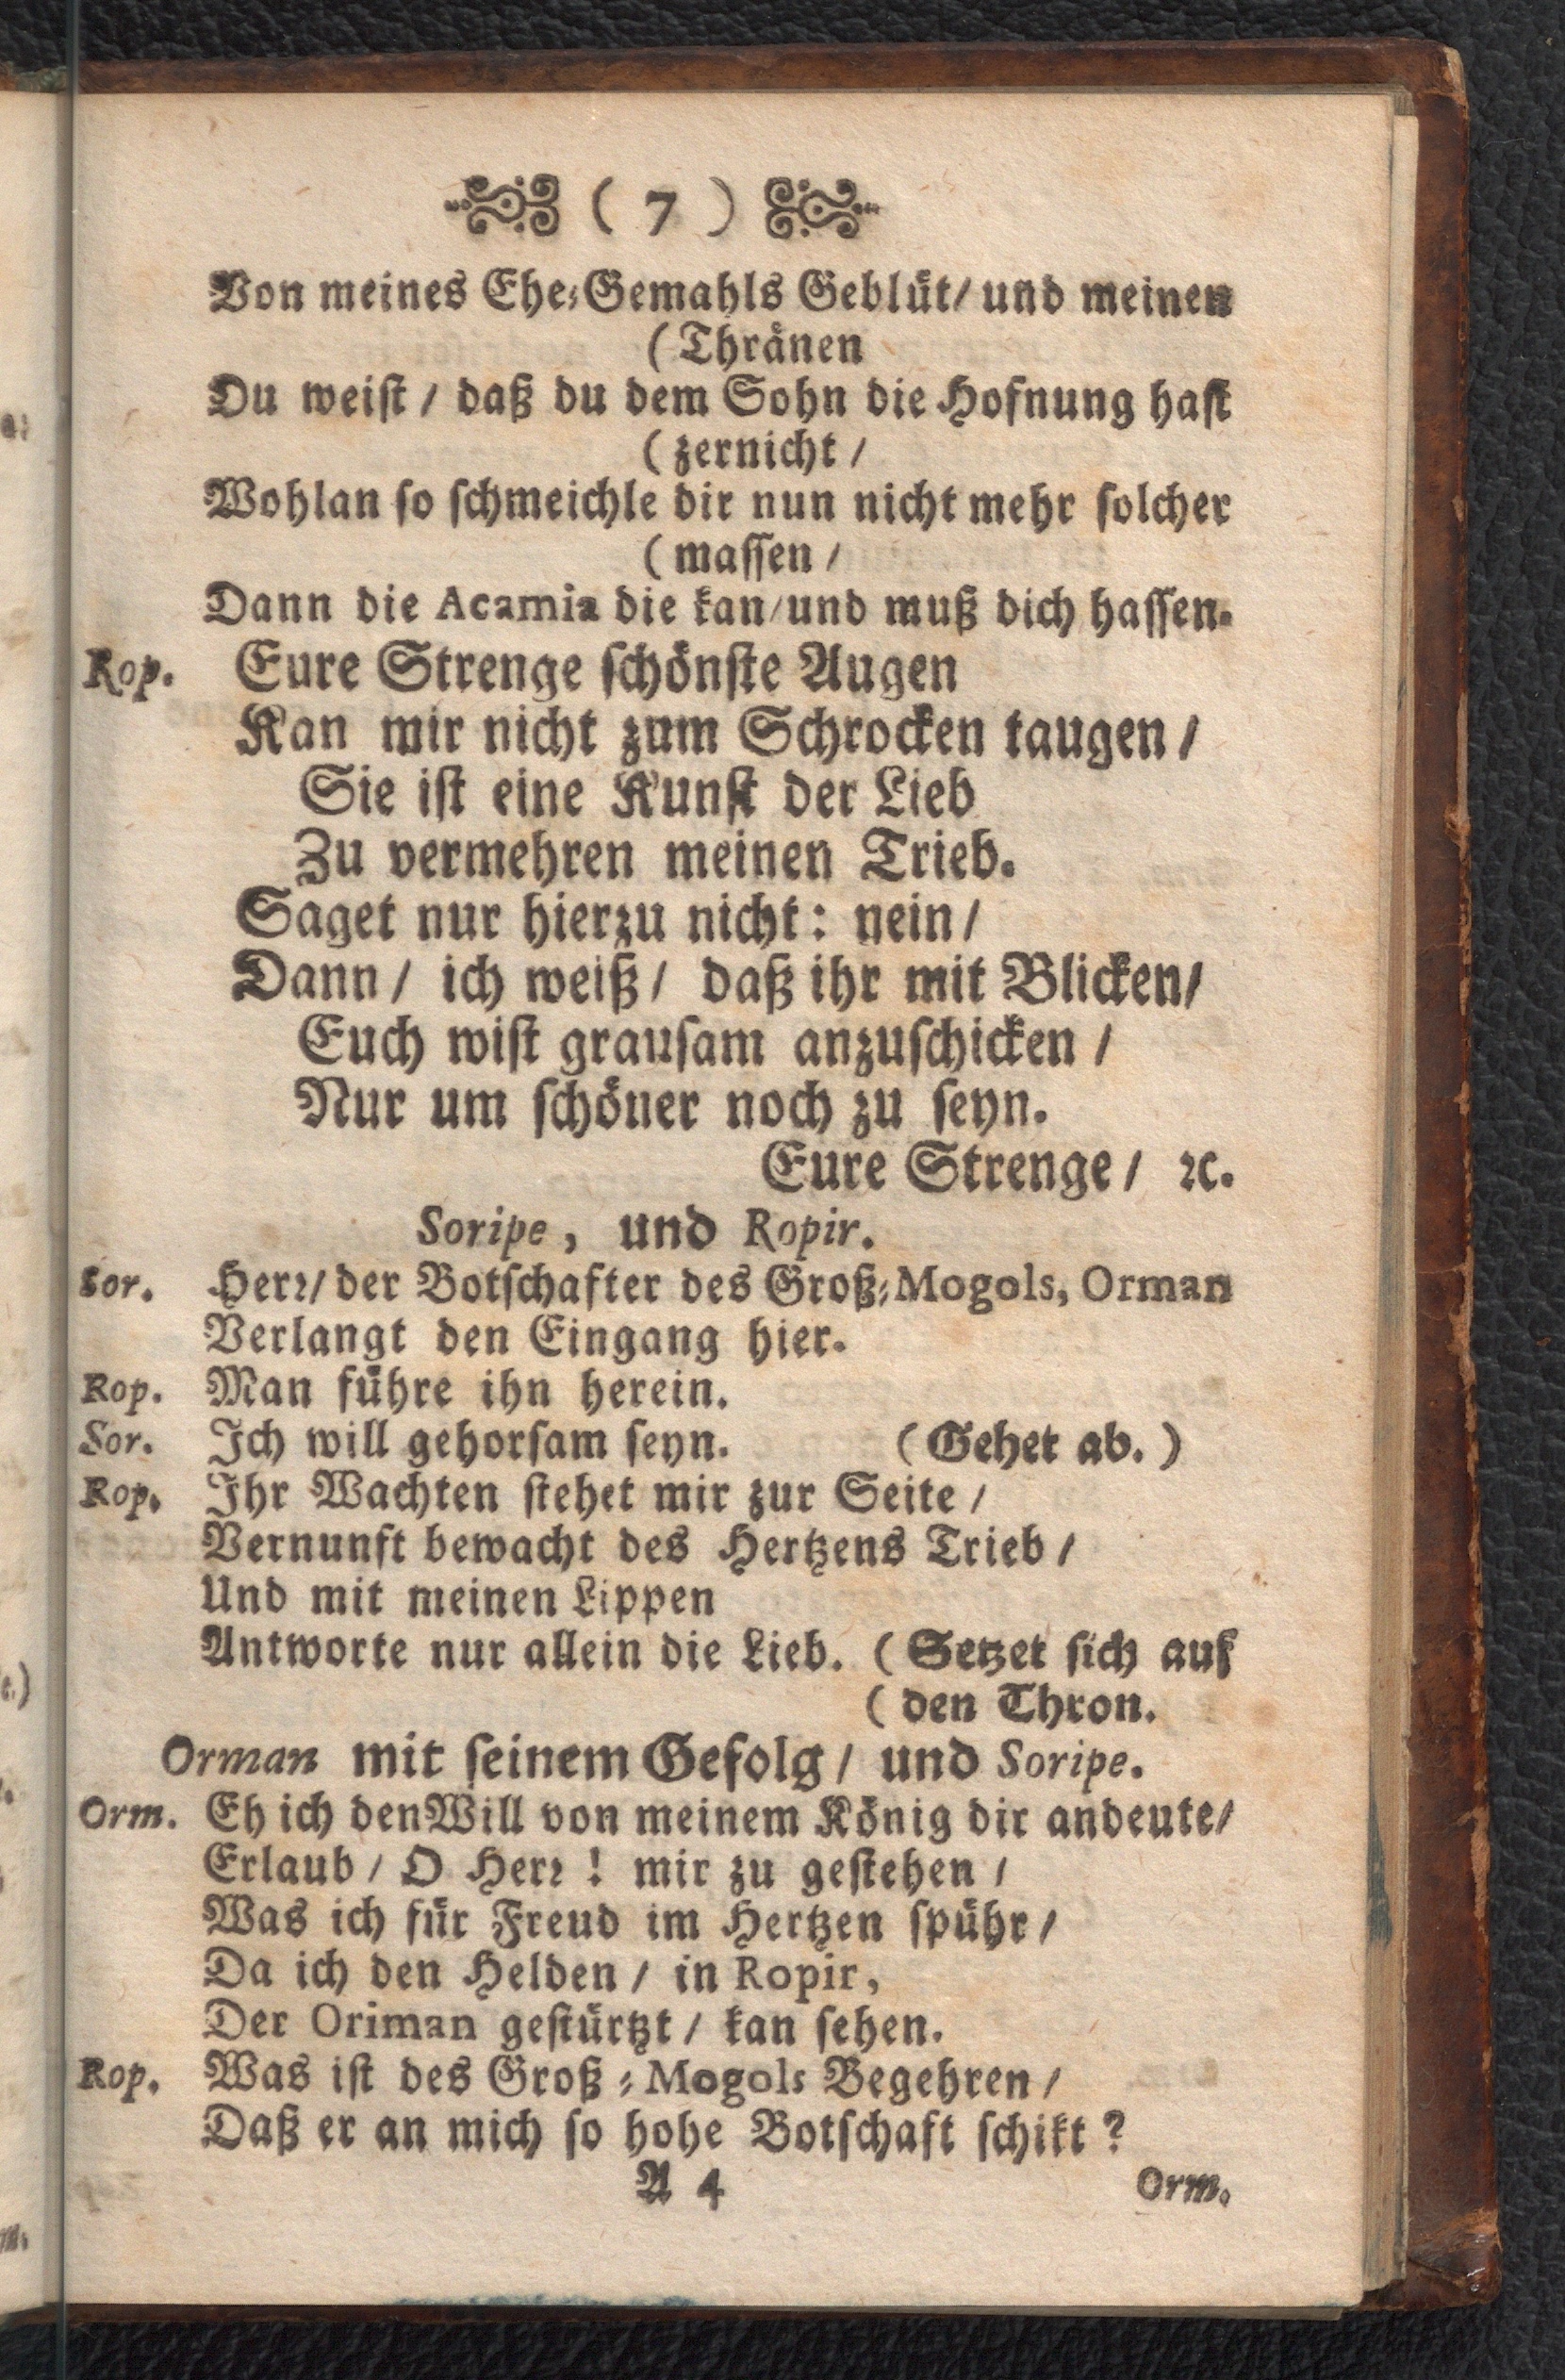 ( 7 )
Von meines Ehe⸗Gemahls Geblüt/ und meinen
(Thränen
Du weist / daß du dem Sohn die Hofnung hast
(zernicht /
Wohlan so schmeichle dir nun nicht mehr solcher
(massen /
Dann die Acamia die kan/und muß dich hassen.
Rop. Eure Strenge schönste Augen
Kan mir nicht zum Schrocken taugen /
Sie ist eine Kunst der Lieb
Zu vermehren meinen Trieb.
Saget nur hierzu nicht: nein /
Dann / ich weiß / daß ihr mit Blicken/
Euch wist grausam anzuschicken /
Nur um schöner noch zu seyn.
Eure Strenge / ꝛc.
Soripe, und Ropir.
Sor. Herꝛ/ der Botschafter des Groß⸗Mogols, Orman
Verlangt den Eingang hier.
Rop. Man führe ihn herein.
Sor. Ich will gehorsam seyn. (Gehet ab.)
Rop. Ihr Wachten stehet mir zur Seite /
Vernunft bewacht des Hertzens Trieb /
Und mit meinen Lippen
Antworte nur allein die Lieb. (Setzet sich auf
(den Thron.
Orman mit seinem Gefolg / und Soripe.
Orm. Eh ich den Will von meinem König dir andeute/
Erlaub / O Herꝛ ! mir zu gestehen /
Was ich für Freud im Hertzen spühr /
Da ich den Helden / in Ropir,
Der Oriman gestürtzt / kan sehen.
Rop. Was ist des Groß⸗Mogols Begehren /
Daß er an mich so hohe Botschaft schikt ?
A 4 Orm.